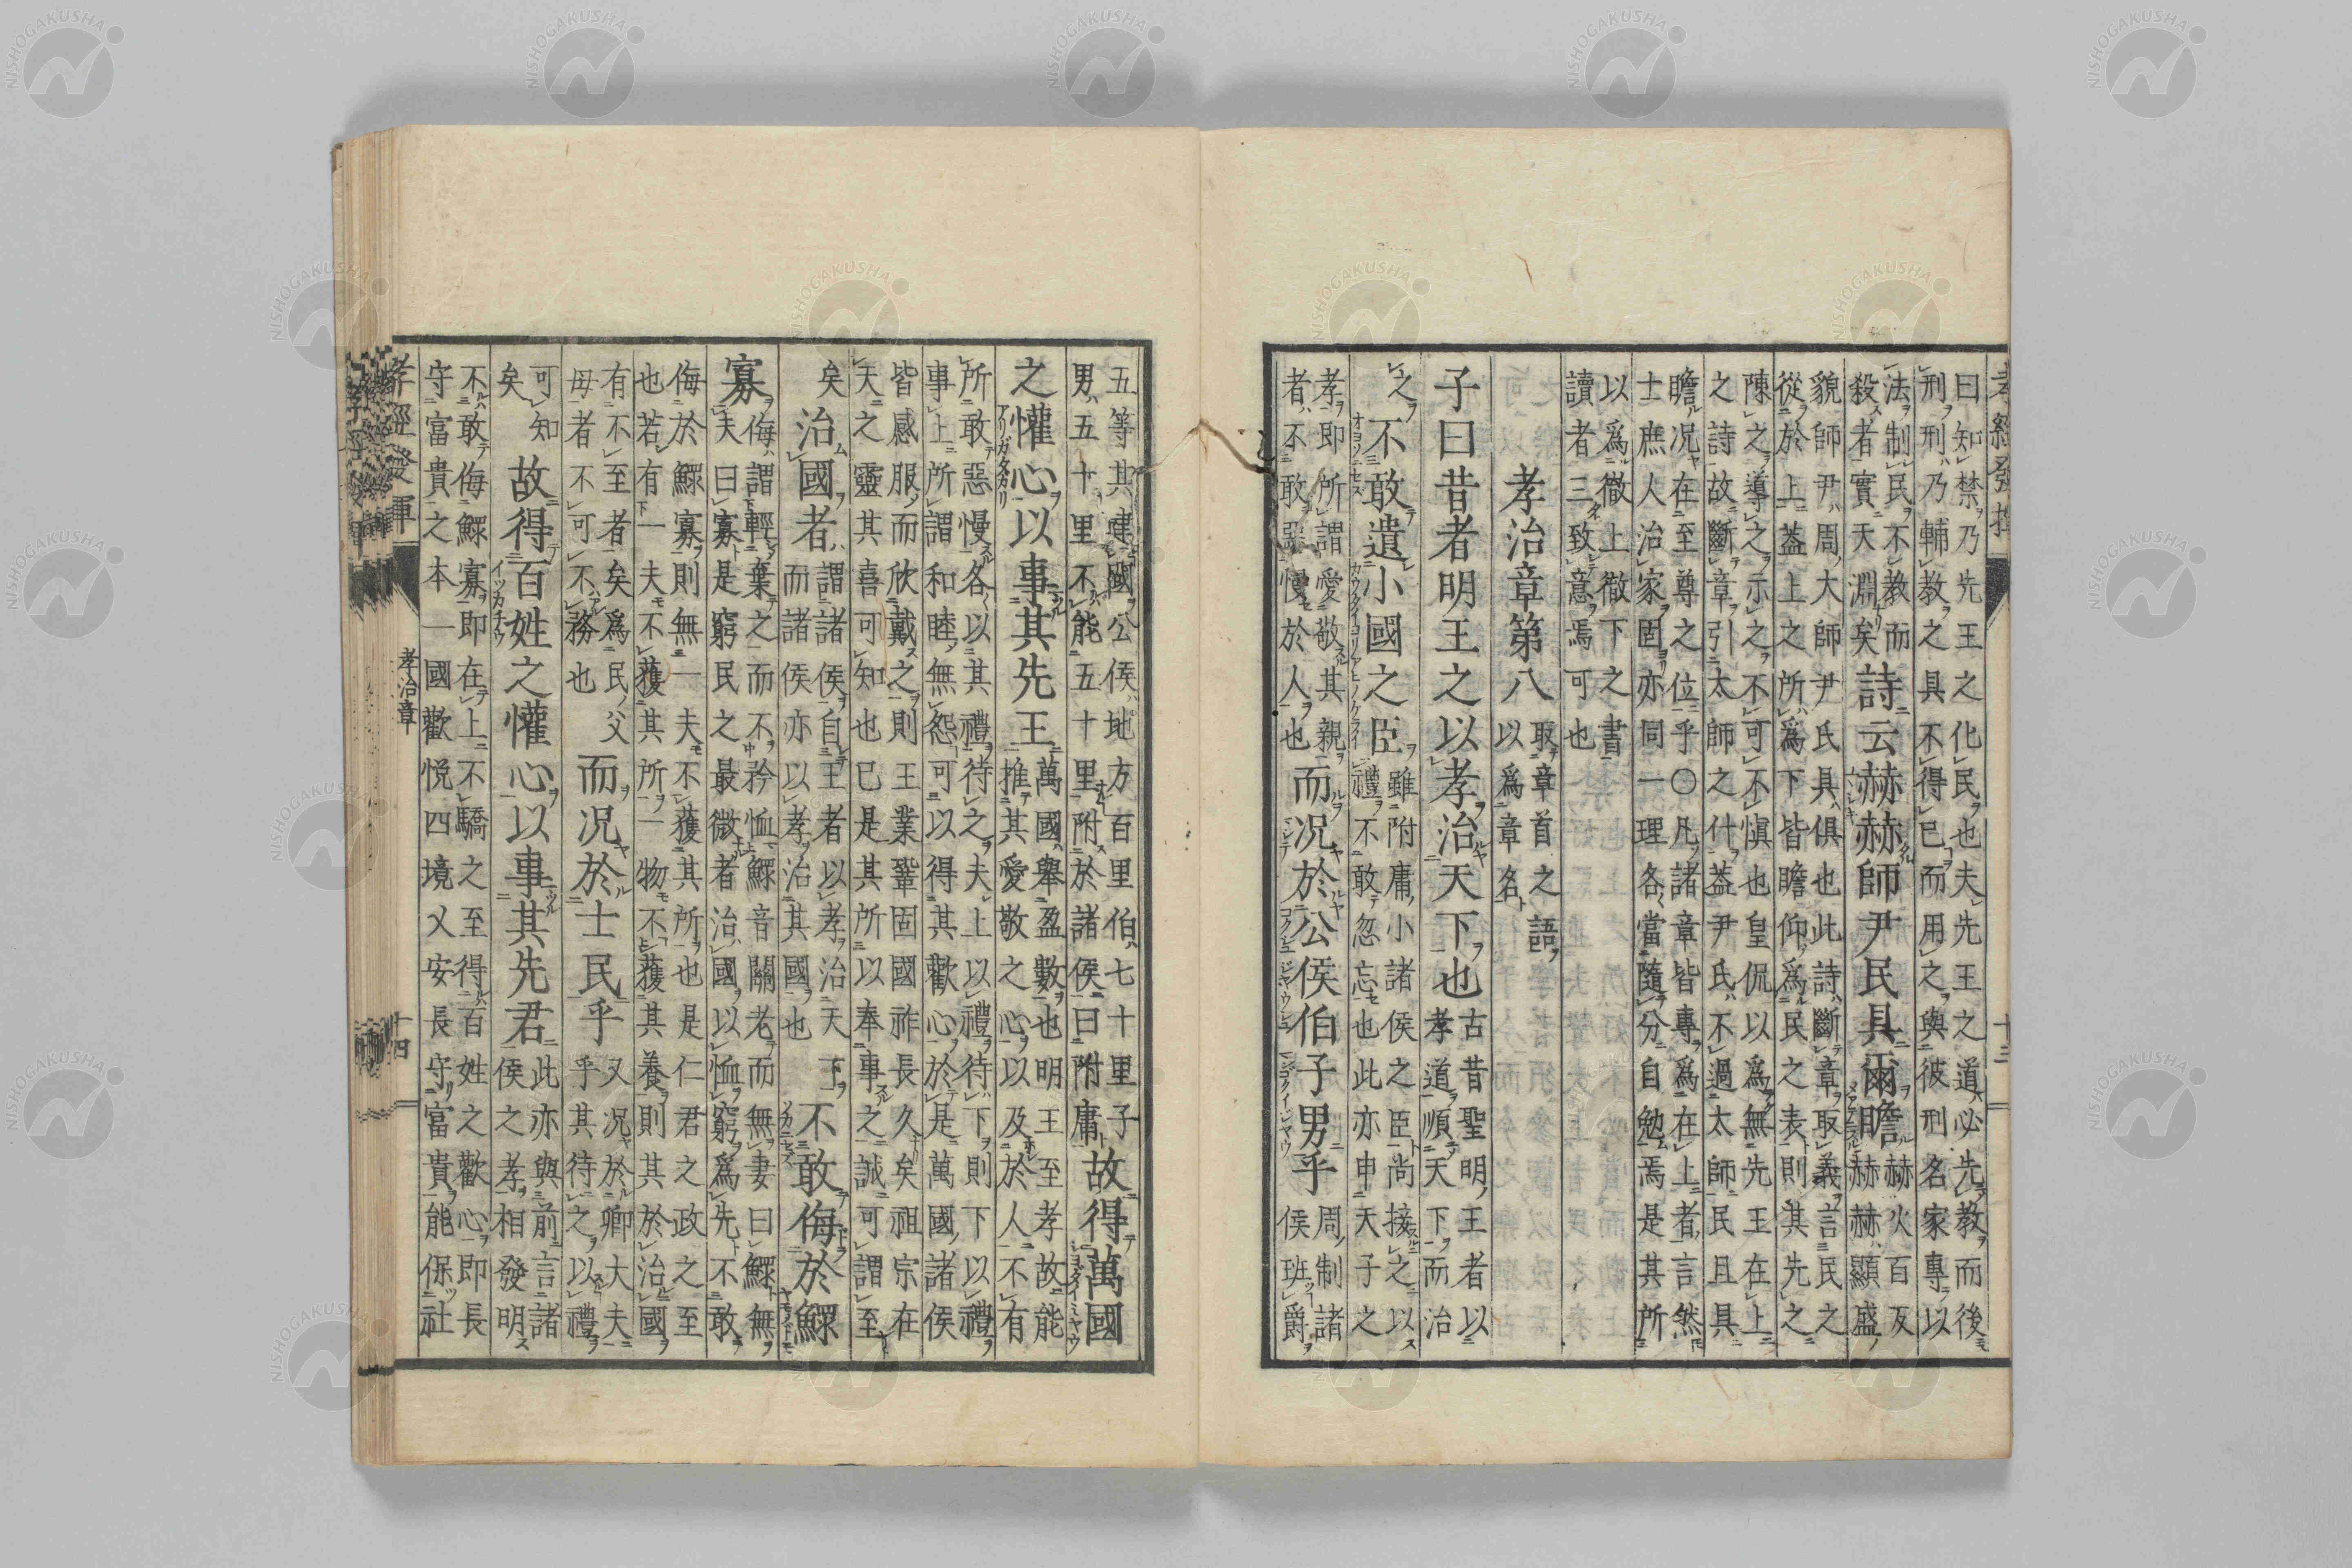 孝經發揮
十三
曰知禁乃先王之化民也夫先王之道必先教而後
刑刑乃輔教之具不得已而用之與彼刑名家專以
法制民不教而
殺者實天淵矣
詩云赫赫師尹民具爾瞻
赫赫火百反
赫赫顯盛
貌師尹周大師尹氏具俱也此詩斷章取義言民之
從於上蓋上之所爲下皆瞻仰爲民之表則其先之
陳之導之示之不可不愼也皇侃以爲無先王在上
之詩故斷章引太師之什蓋尹氏不過太師民且具
瞻况在至尊之位乎〇凡諸章皆專爲在上者言然
士庶人治家固亦同一理各當隨分自勉焉是其所
以爲徹上徹下之書
讀者三致意焉可也
孝治章第八
取章首之語
以爲章名
子曰昔者明王之以孝治天下也
古昔聖明王者以
孝道順天下而治
之
不敢遺小國之臣
雖附庸小諸侯之臣尚接之以
禮不敢忽忘也此亦申天子之
孝即所謂愛敬其親
者不敢惡慢於人也
而况於公侯伯子男乎
周制諸
侯班爵
五等其建國公侯地方百里伯七十里子
男五十里不能五十里附於諸侯曰附庸
故得萬國
之懽心以事其先王
萬國舉盈數也明王至孝故能
推其愛敬之心以及於人不有
所敢惡慢各以其禮待之夫上以禮待下則下以禮
事上所謂和睦無怨可以得其歡心於是萬國諸侯
皆感服而欣戴之則王業鞏固國祚長久矣祖宗在
天之靈其喜可知也已是其所以奉事之誠可謂至
矣
治國者
謂諸侯自王者以孝治天下
而諸侯亦以孝治其國也
不敢侮於鰥
寡
侮謂輕棄之而不矜恤鰥音關老而無妻曰鰥無
夫曰寡是窮民之最微者治國以恤窮爲先不敢
侮於鰥寡則無一夫不獲其所也是仁君之政之至
也若有一夫不獲其所一物不獲其養則其於治國
有不至者矣爲民父
母者不可不務也
而况於士民乎
又况於卿大夫
乎其待之以禮
可知
矣
故得百姓之懽心以事其先君
此亦與前言諸
侯之孝相發明
不敢侮鰥寡即在上不驕之至得百姓之歡心即長
守富貴之本一國歡悦四境乂安長守富貴能保社
孝經發揮
孝治章
十四